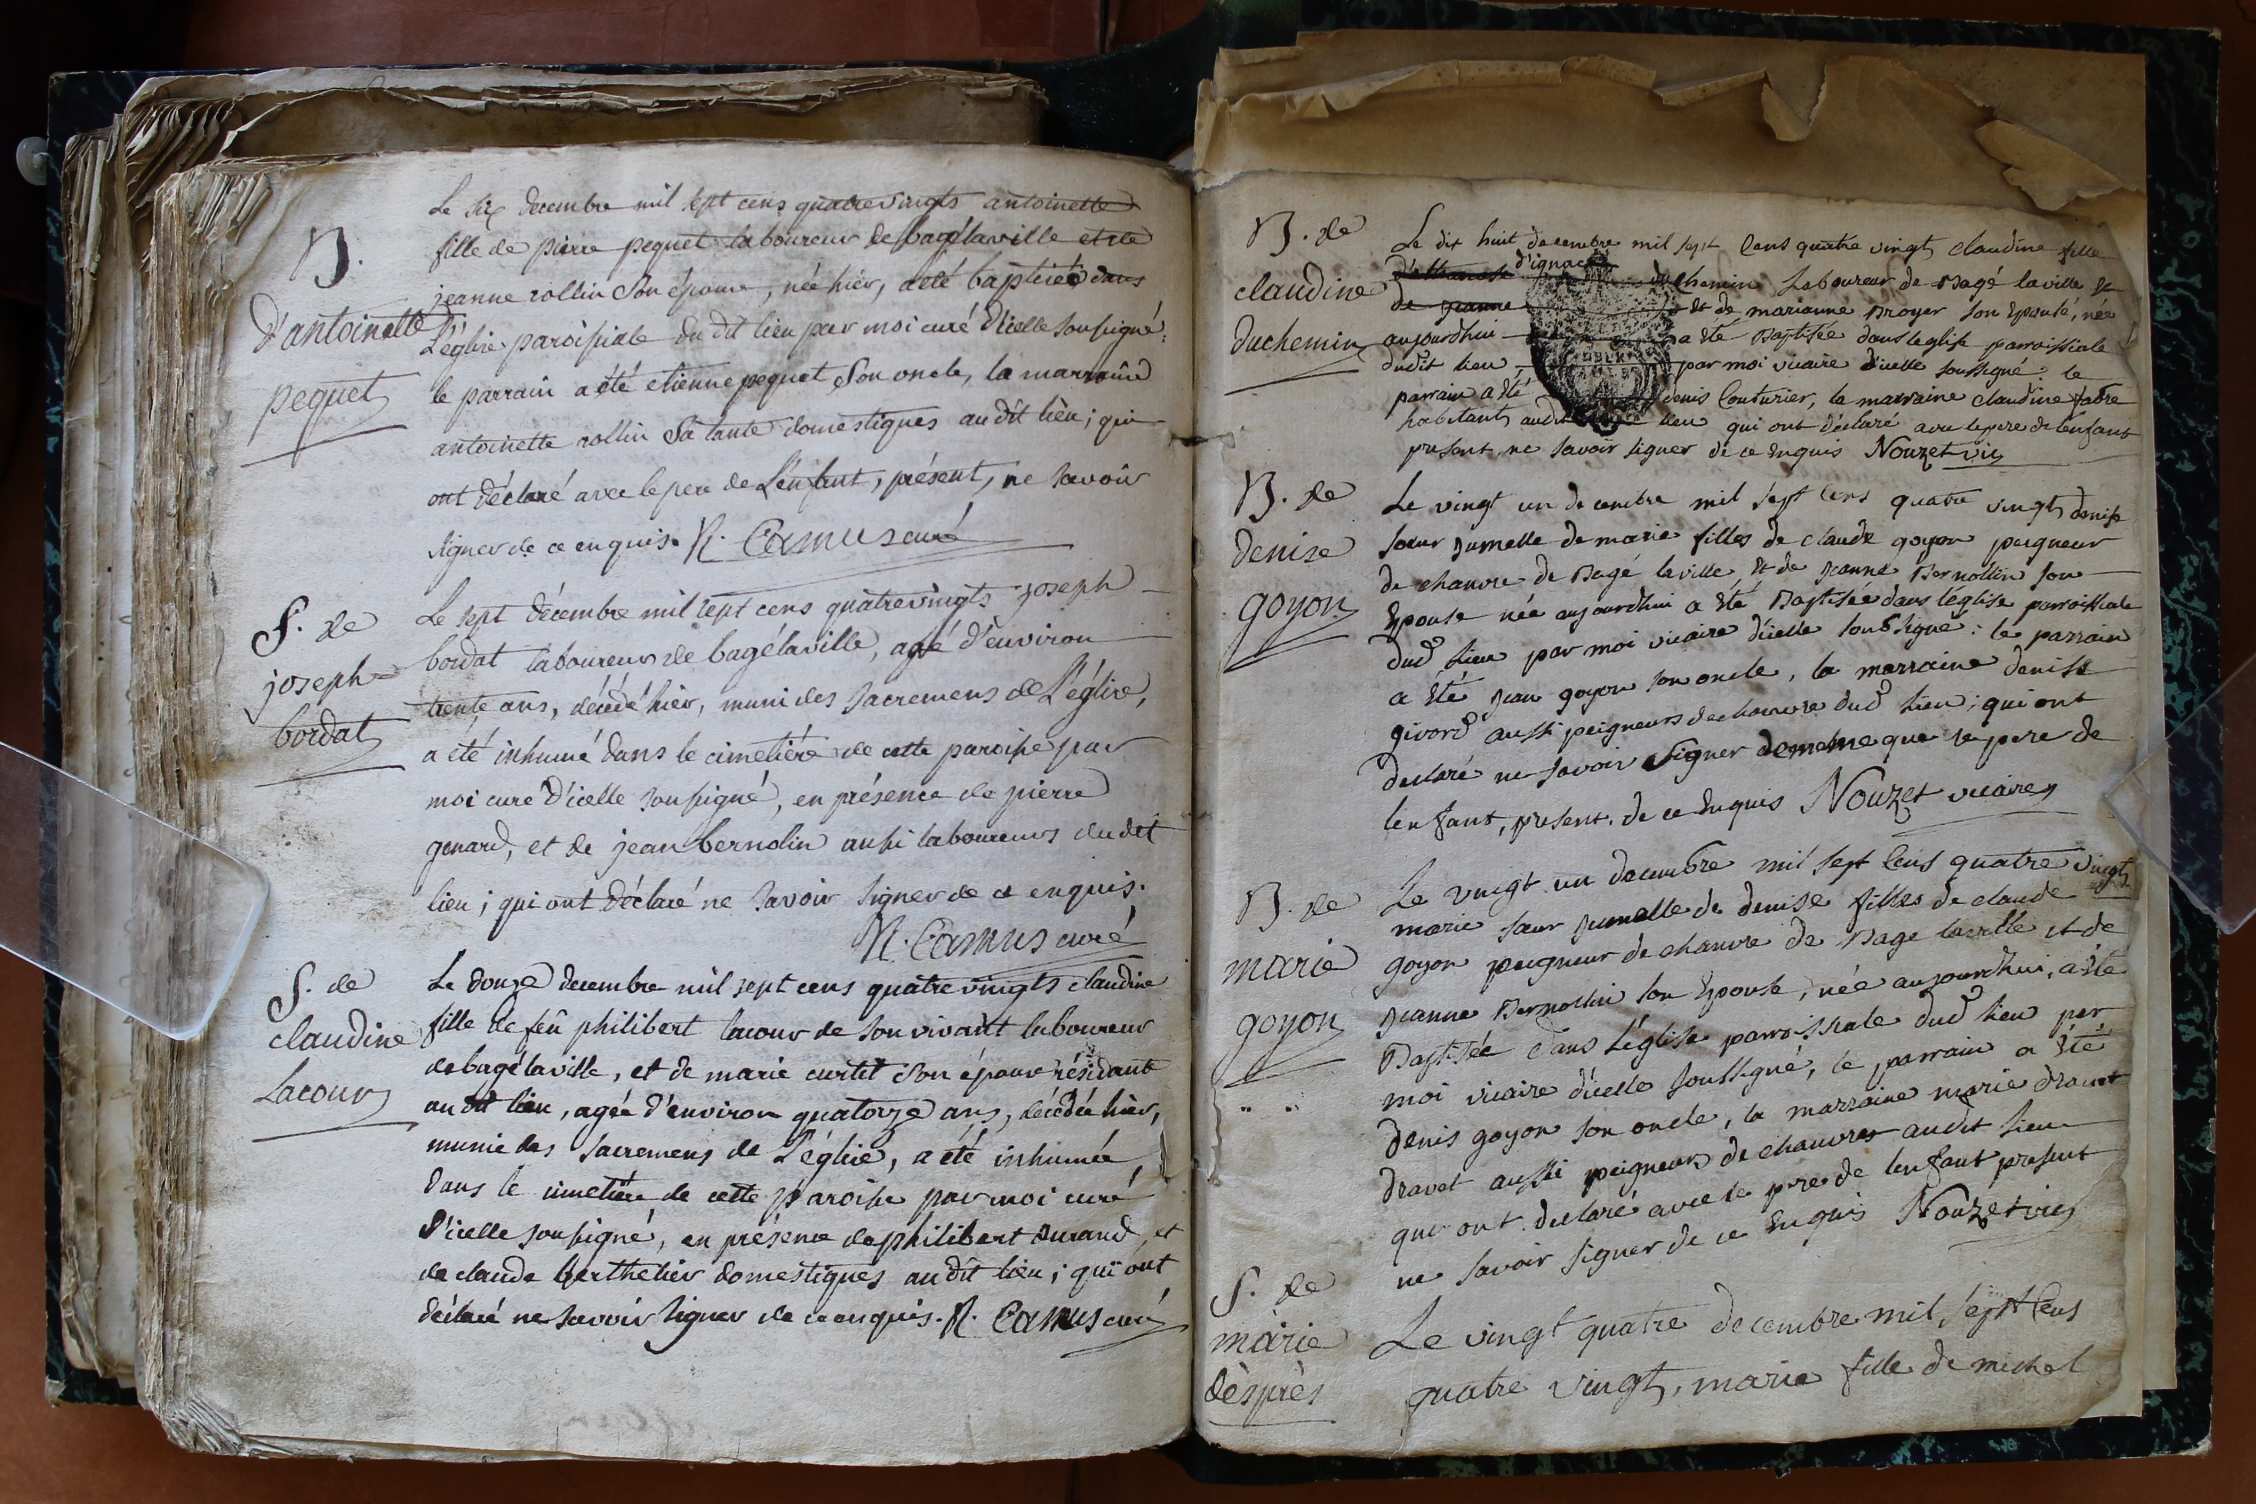 B.
d'antoinette
pequet
Le six decembre mil sept cens quatrevingts antoinette
fille de pierre pequet laboureur de bagélaville et de
jeanne rollin son épouse, née hier, a été baptisée dans
L'église paroissiale du dit lieu par moi curé d'icelle soussigné:
le parrain a été etienne pequet son oncle, la marraine
antoinette rollin sa tante domestiques au dit lieu; qui
ont déclaré avec le pere de L'enfant, présent, ne savoir
signer de ce enquis. N. Camus curé
S. de
joseph
bordat
Le sept décembre mil sept cens quatrevingts joseph
bordat laboureur de bagélaville, agé d'environ
trente ans, décédé hier, muni des sacremens de L'église,
a été inhumé dans le cimetière de cette paroisse par
moi curé d'icelle soussigné, en présence de pierre
genard, et de jean bernolin aussi laboureurs du dit
lieu; qui ont déclaré ne savoir signer de ce enquis.
N. Camus curé
S. de
claudine
Lacour
Le douze decembre mil sept cens quatre vingts claudine
fille de feû philibert lacour de son vivant laboureur
de bagélaville, et de marie curtet son épouse résidante
au dit lieu, agée d'environ quatorze ans, décédée hier,
munie des sacremens de L'église, a été inhumée
dans le cimetière de cette paroisse par moi curé
d'icelle soussigné, en présence de philibert durand, et
de claude berthelier domestiques au dit lieu; qui ont
déclaré ne savoir signer de ce enquis. N. Camus curé
B. de
claudine
duchemin
Le dix huit decembre mil sept Cens quatre vingts claudine fille
d'ignace duchemin Laboureur de Bagé laville et
de jeanne et de marianne Broyer son Epouse, née
aujourdhui a été Baptisée dans leglise parroissiale
dudit lieu, par moi vicaire d'icelle soussigné le
parrain a été denis Couturier, la marraine claudine fabre
habitants audit lieu qui ont déclaré avec le pere de lenfant
present, ne savoir signer de ce enquis Nouzet vic
B. de
denise
goyon
Le vingt un decembre mil sept Cens quatre vingts denise
soeur jumelle de marie filles de claude goyon peigneur
de chanvre de Bagé laville et de jeanne Bernollin son
Epouse née aujourdhui a été Baptisée dans l'église parroissiale
dud lieu par moi vicaire d'icelle soussigné: le parrain
a été jean goyon son oncle, la marraine denise
givord aussi peigneurs de chanvre dud lieu; qui ont
declaré ne savoir signer de meme que le pere de
lenfant, present. de ce enquis Nouzet vicaire
B. de
marie
goyon
Le vingt un decembre mil sept Cens quatre vingts
marie soeur jumelle de denise filles de claude
goyon peigneur de chanvre de Bage laville et de
jeanne Bernollin son Epouse, née aujourdhui, a été
Baptisée dans L'église parroissiale dud lieu par
moi vicaire d'icelle soussigné, le parrain a été
denis goyon son oncle, la marraine marie
dravet aussi peigneurs de chanvres audit lieu
qui ont declaré avec le pere de lenfant present
ne savoir signer de ce enquis Nouzet vic
S. de
marie
dèsprès
Le vingt quatre decembre mil sept Cens
quatre vingts, marie fille de michel